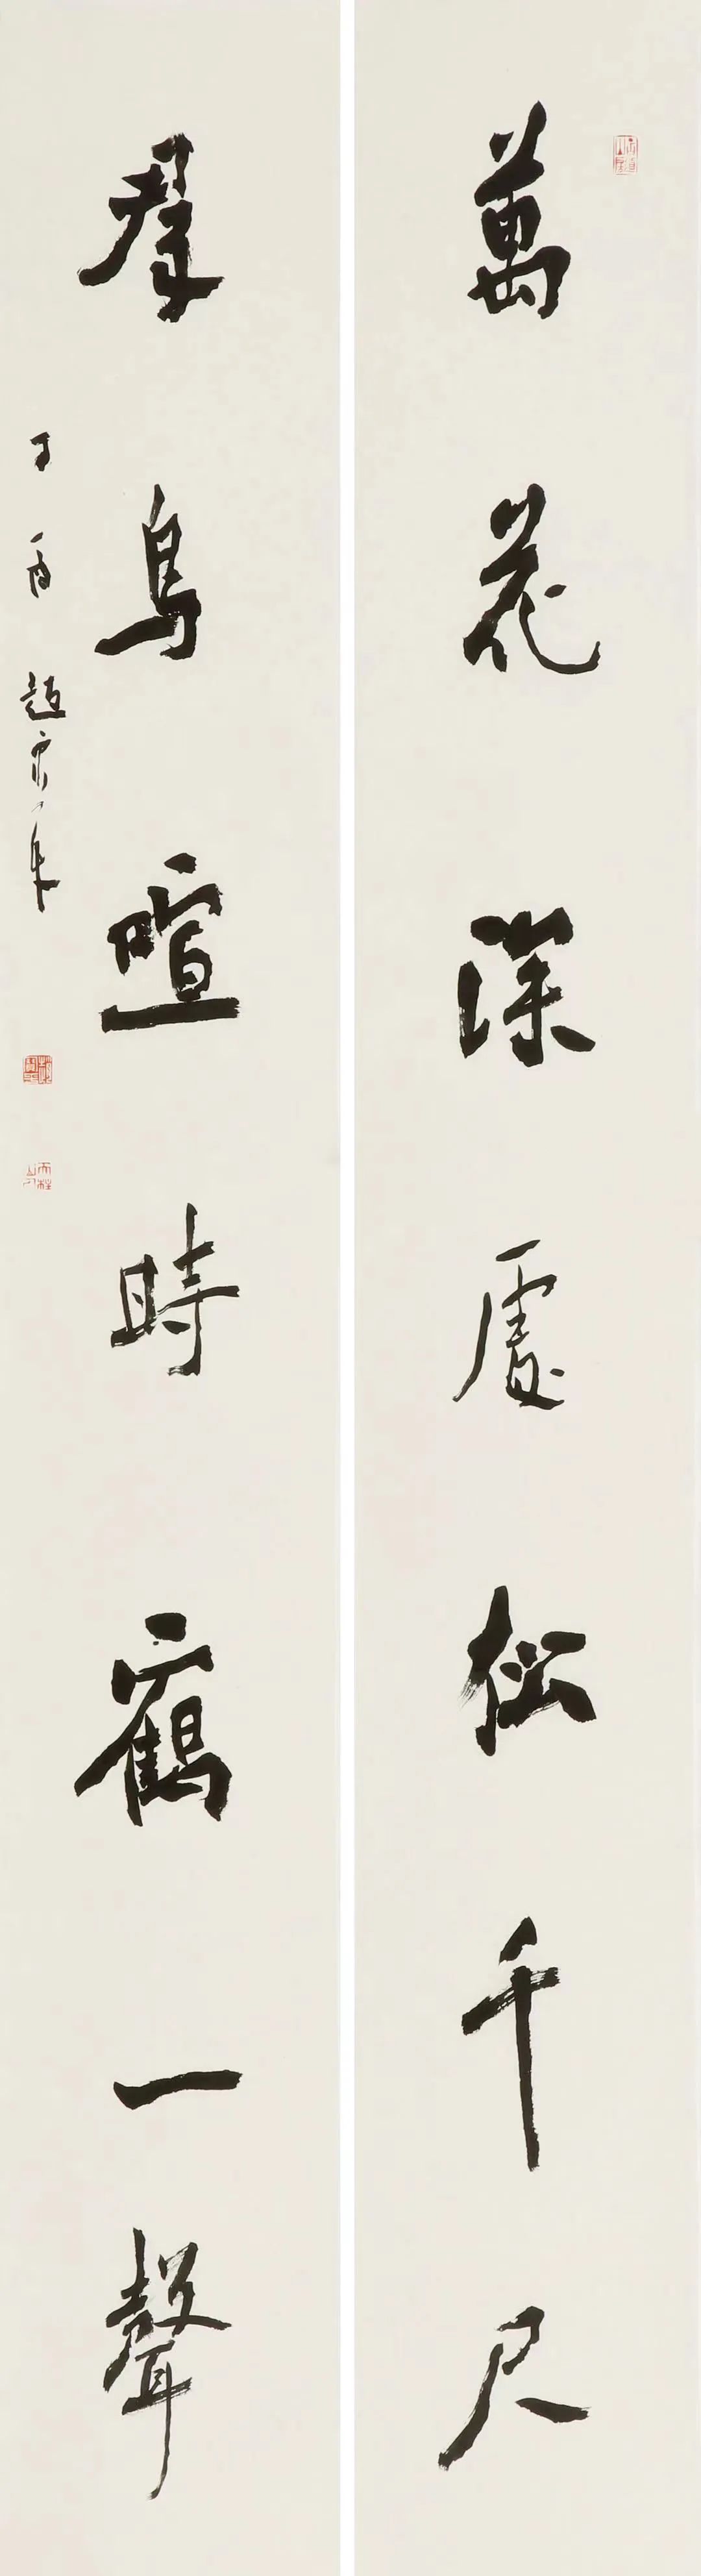 萬花深處松千尺
羣鳥喧時鶴一聲
丁酉 趙